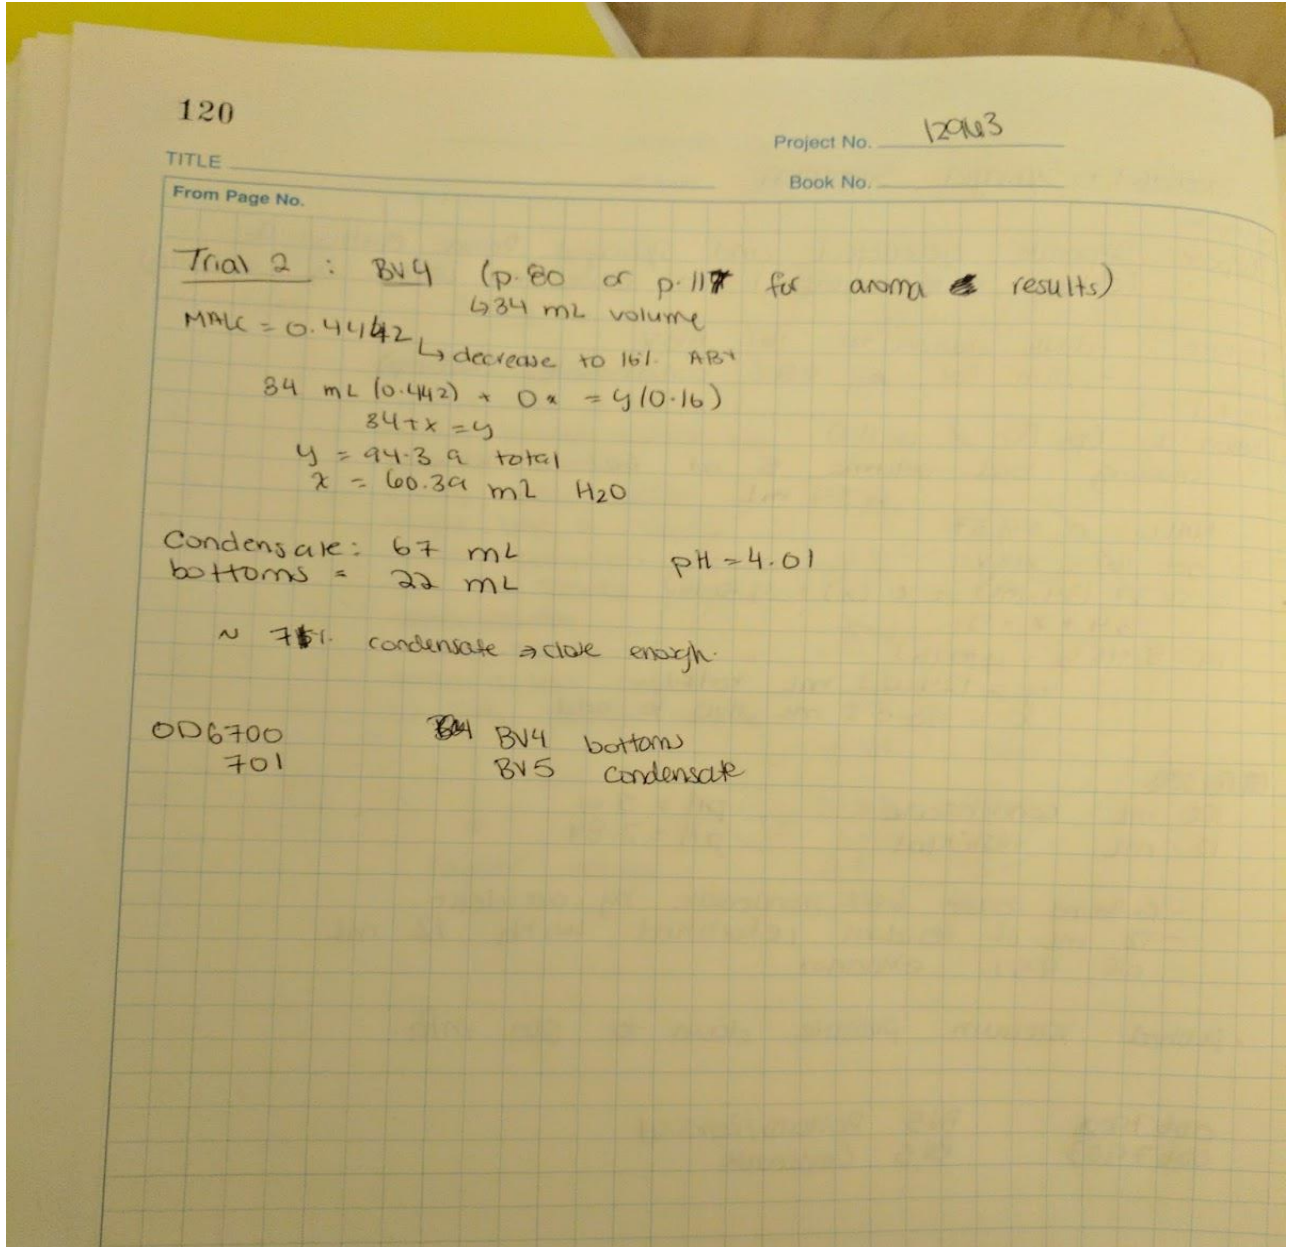 120
Project No. 12963
TITLE
Book No.
From Page No.
Trial 2 : BV4 (p.80 or p.117 for aroma results)
↳34 mL volume
MALC = 0.442
↳ decrease to 16% ABV
34 mL (0.442) + 0x = y(0.16)
34+x = y
y = 94.39 total
x = 60.39 mL H2O
Condensate: 67 mL pH = 4.01
bottoms = 22 mL
~ 75% condensate ⇒ close enough.
OD6700 BV4 bottoms
701 BV5 condensate